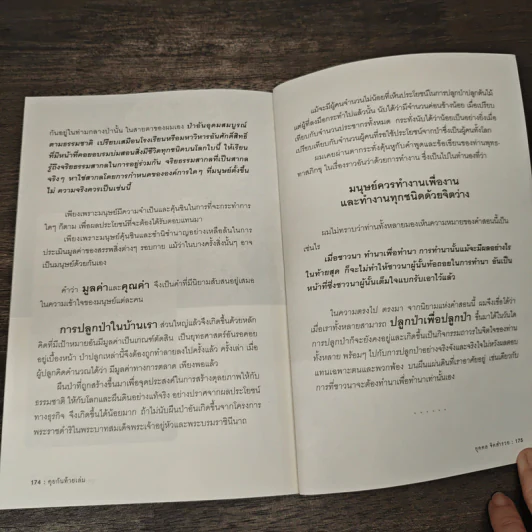 กันอยู่ในท่ามกลางป่านั้น ในสายตาของผมเอง ป่าอันอุดมสมบูรณ์
ตามธรรมชาติ เปรียบเสมือนโรงเรียนหรือมหาวิหารอันศักดิ์สิทธิ์
ที่มีหน้าที่คอยอบรมบ่มสอนสิ่งมีชีวิตทุกชนิดบนโลกใบนี้ ให้เรียน
รู้ถึงจริยธรรมสากลในการอยู่ร่วมกัน จริยธรรมสากลที่เป็นสากล
จริงๆ หาใช่สากลโดยการกำหนดขององค์กรใดๆ ที่มนุษย์ตั้งขึ้น
ไม่ ความจริงควรเป็นเช่นนี้
เพียงเพราะมนุษย์มีความจำเป็นและคุ้นชินในการที่จะกระทำการ
ใดๆ ก็ตาม เพื่อผลประโยชน์ที่จะต้องได้รับตอบแทนมา
เพียงเพราะมนุษย์คุ้นชินและชำนิชำนาญอย่างเหลือล้นในการ
ประเมินมูลค่าของสรรพสิ่งต่างๆ รอบกาย แม้ว่าในบางครั้งสิ่งนั้นๆ อาจ
เป็นมนุษย์ด้วยกันเอง
คำว่า มูลค่าและคุณค่า จึงเป็นคำที่มีนิยามสับสนอยู่เสมอ
ในความเข้าใจของมนุษย์แต่ละคน
การปลูกป่าในบ้านเรา ส่วนใหญ่แล้วจึงเกิดขึ้นด้วยหลัก
คิดที่มีเป้าหมายอันมีมูลค่าเป็นเกณฑ์ตัดสิน เป็นยุทธศาสตร์อันรอคอย
อยู่เบื้องหน้า ป่าปลูกเหล่านี้จึงต้องถูกทำลายลงไปครั้งแล้ว ครั้งเล่า เมื่อ
ผู้ปลูกคิดคำนวณได้ว่า มีมูลค่าทางการตลาด เพียงพอแล้ว
ผืนป่าที่ถูกสร้างขึ้นมาเพื่อจุดประสงค์ในการสร้างดุลยภาพให้กับ
ธรรมชาติ ให้กับโลกและผืนดินอย่างแท้จริง อย่างปราศจากผลประโยชน์
ทางธุรกิจ จึงเกิดขึ้นได้น้อยมาก ถ้าไม่นับผืนป่าอันเกิดขึ้นจากโครงการ
พระราชดำริในพระบาทสมเด็จพระเจ้าอยู่หัวและพระบรมราชินีนาถ
174 | คุยกันท้ายเล่ม
แม้จะมีผู้คนจำนวนไม่น้อยที่เห็นประโยชน์ในการปลูกป่าปลูกต้นไม้
แต่ผู้ที่ลงมือกระทำไปแล้วนั้น นับได้ว่ามีจำนวนค่อนข้างน้อย เมื่อเปรียบ
เทียบกับจำนวนประชากรทั้งหมด กระทั่งนับได้ว่าน้อยเป็นอย่างยิ่งเมื่อ
เปรียบเทียบกับจำนวนผู้คนที่รอใช้ประโยชน์จากป่าซึ่งเป็นผู้คนทั้งโลก
ผมเคยผ่านตากระทั่งคุ้นหูกับคำพูดและข้อเขียนของท่านพุทธ-
ทาสภิกขุ ในเรื่องราวอันว่าด้วยการทำงาน ซึ่งเป็นไปในทำนองที่ว่า
มนุษย์ควรทำงานเพื่องาน
และทำงานทุกชนิดด้วยจิตว่าง
ผมไม่ทราบว่าท่านทั้งหลายมองเห็นความหมายของคำสอนนี้เป็น
เช่นไร
เมื่อชาวนา ทำนาเพื่อทำนา การทำนานั้นแม้จะมีผลอย่างไร
ในท้ายสุด ก็จะไม่ทำให้ชาวนาผู้นั้นท้อถอยในการทำนา อันเป็น
หน้าที่ซึ่งชาวนาผู้นั้นเต็มใจแบกรับเอาไว้แล้ว
ในความตรงไป ตรงมา จากนิยามแห่งคำสอนนี้ ผมจึงเชื่อได้ว่า
เมื่อเราทั้งหลายสามารถ ปลูกป่าเพื่อปลูกป่า ขึ้นมาได้ในวันใด
การปลูกป่าก็จะยังคงอยู่และจะเกิดขึ้นเป็นกิจกรรมถาวรในจิตใจของท่าน
ทั้งหลาย พร้อมๆ ไปกับการปลูกป่าอย่างจริงจังและจริงใจไม่หวังผลตอบ
แทนเฉพาะตนและพวกพ้อง บนผืนแผ่นดินที่เราอาศัยอยู่ เช่นเดียวกับ
การที่ชาวนาจะต้องทำนาเพื่อทำนาเช่นนั้นเอง
......
175